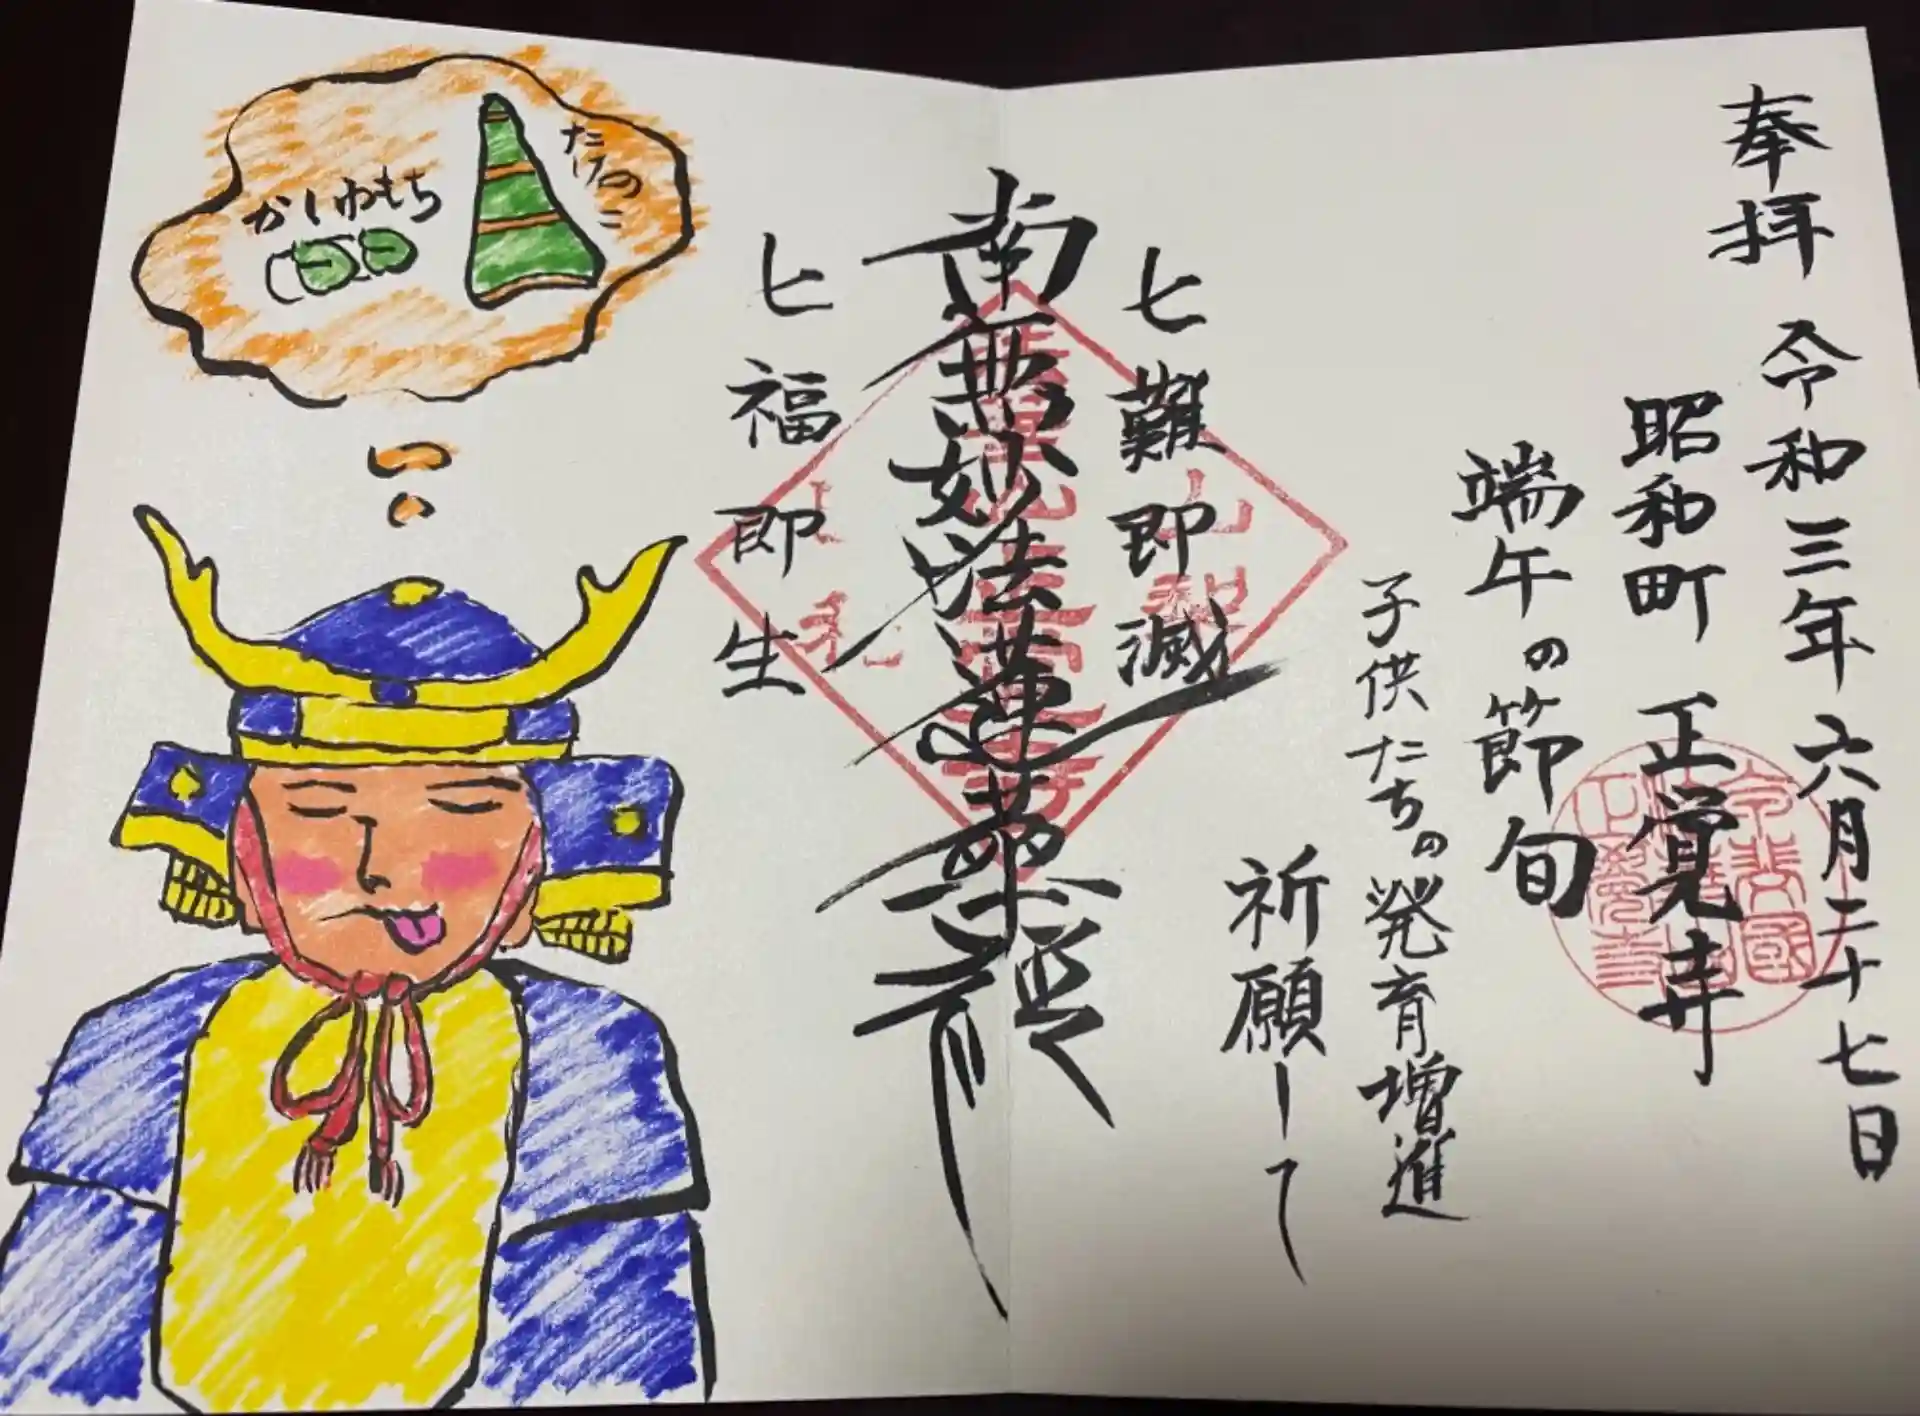 奉拝 令和三年六月二十七日
昭和町 正覚寺
端午の節旬
子供たちの発育増進
祈願して
七難即滅
南無妙法蓮華経
七福即生
たけのこ
かしわもち